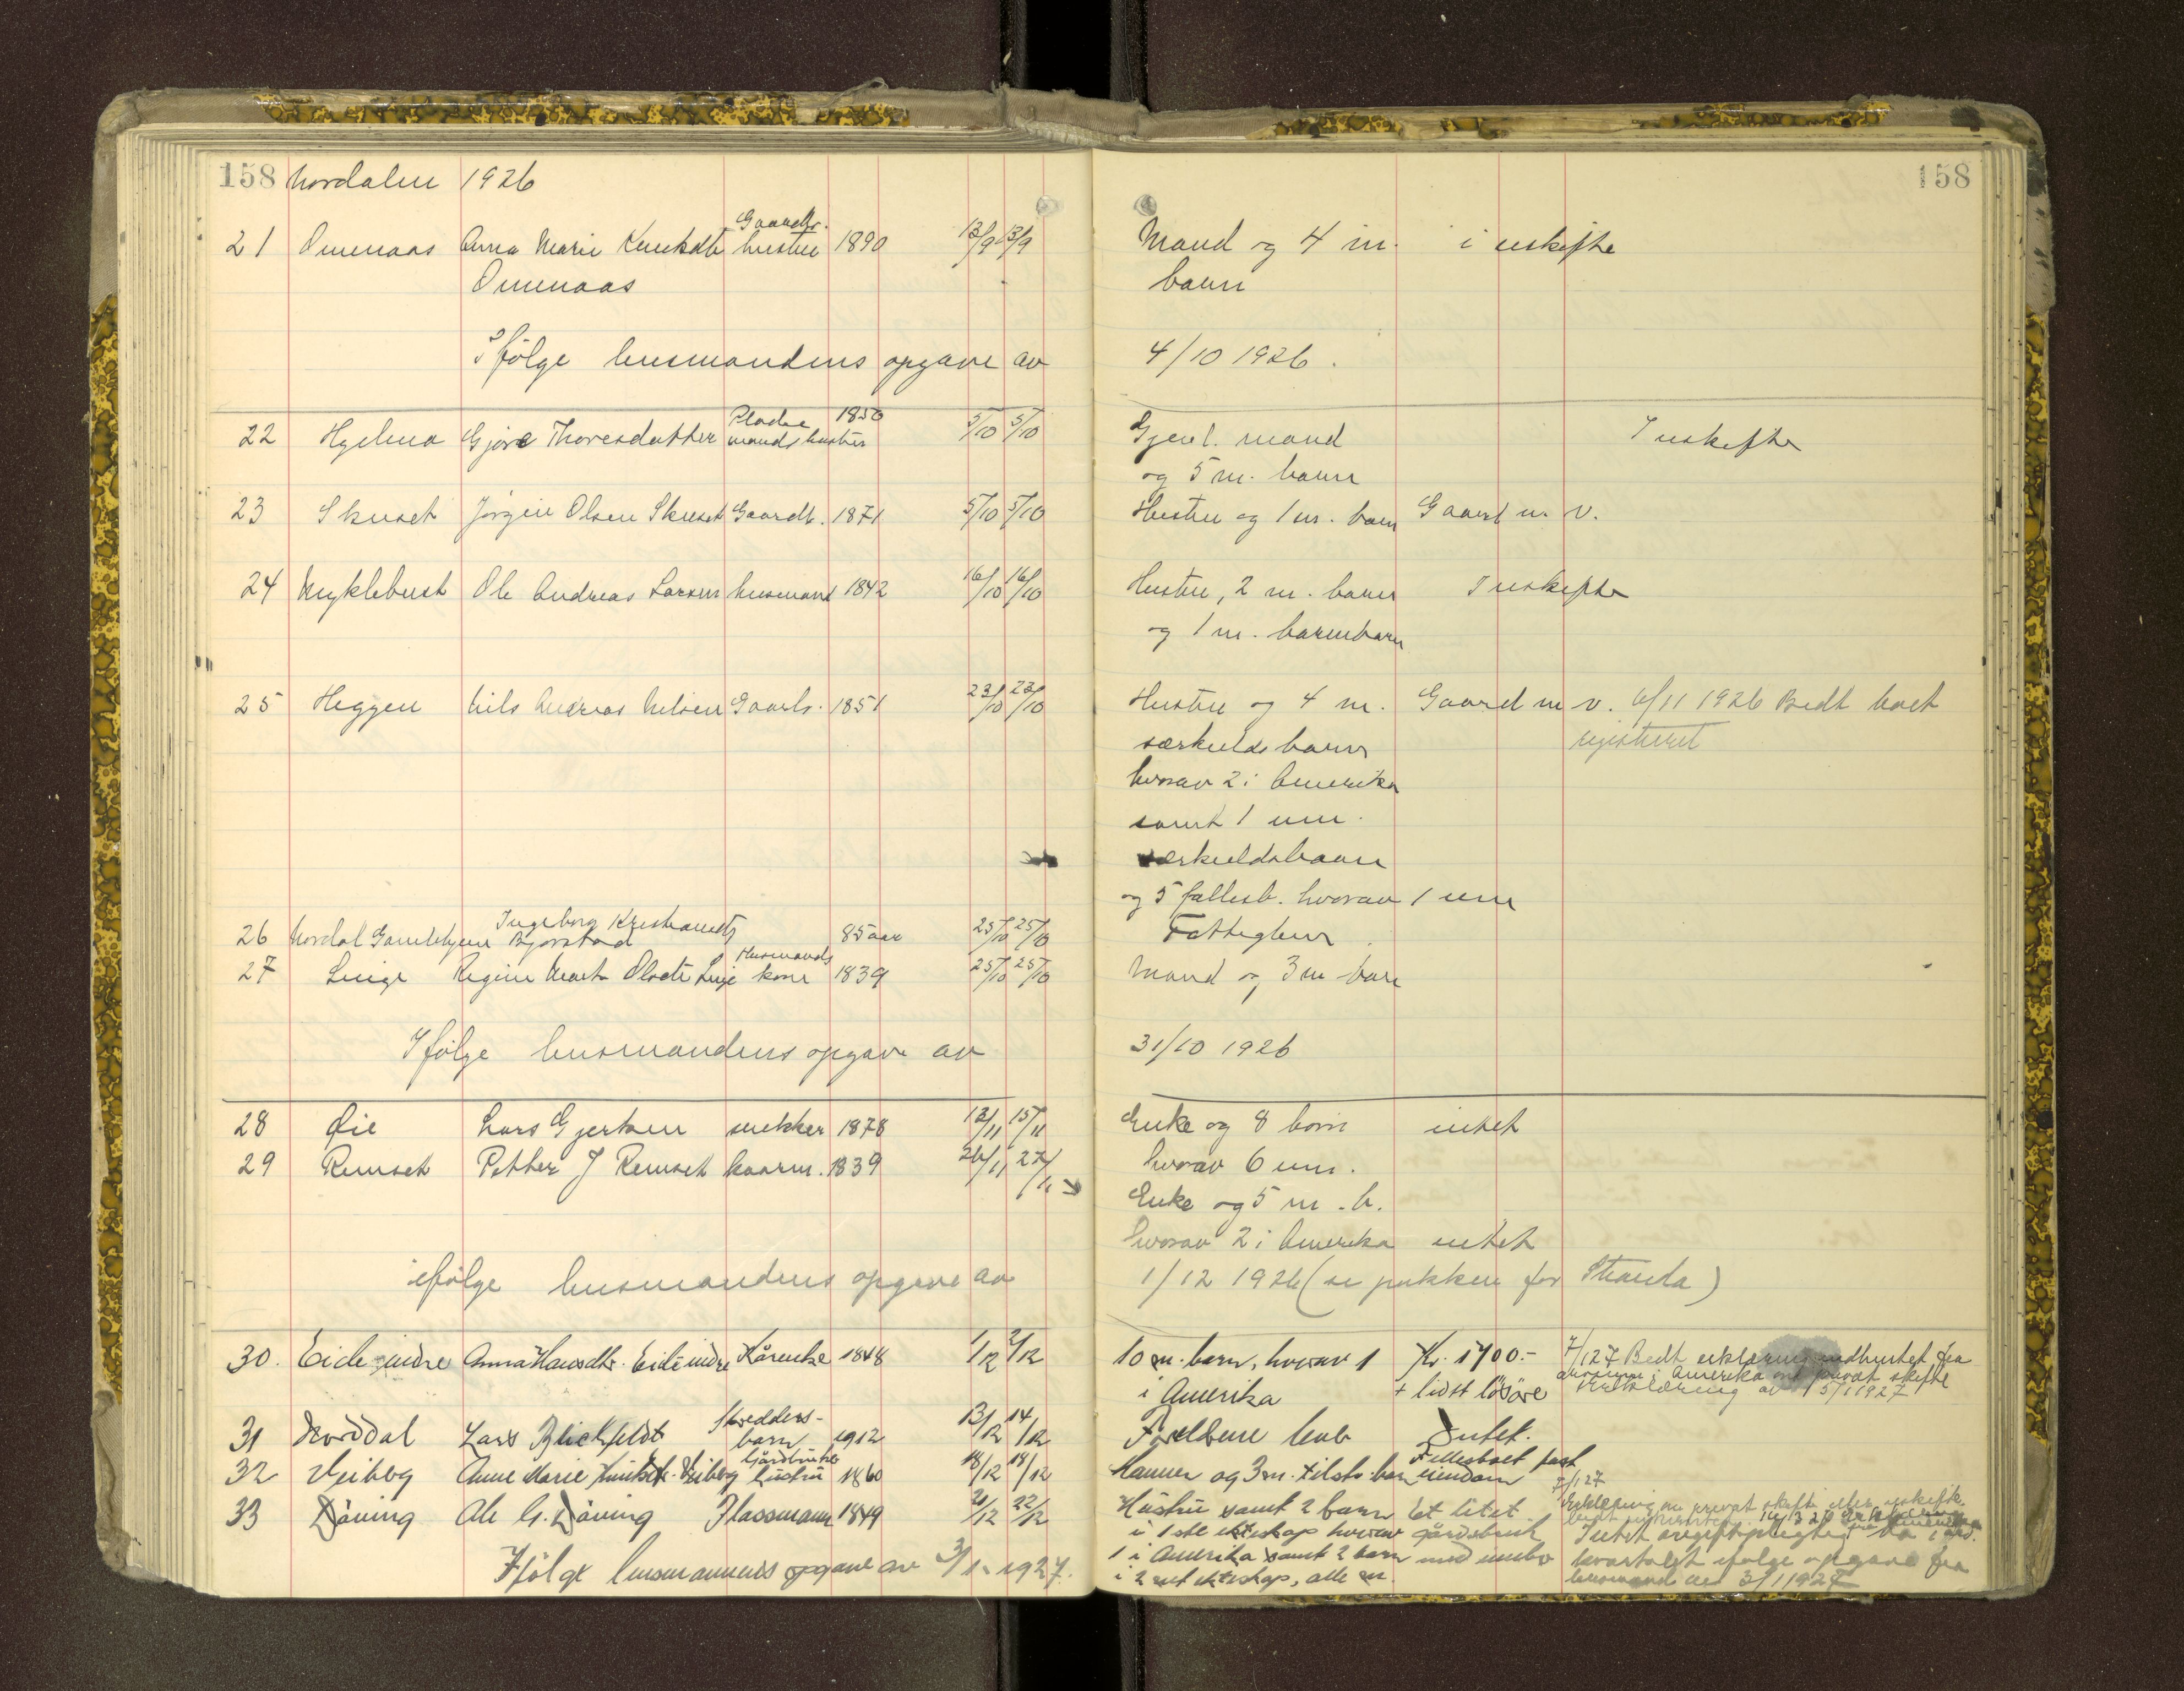 158 Nordalen 1926
158
21 Omenaas Anna Marie Knutsdtr Gaardbr. hustru 1890 13/9 13/9 Mand og 4 m. i uskifte
Omenaas barn
Ifölge lensmandens opgave av 4/10 1926.
22 Hjelma Gjøre Thoresdatter Pladsemands hustru 1850 5/10 5/10 Gjenl. mand Iuskifte
og 5 m. barn
23 Skuset Jørgen Olsen Skuset Gaardb. 1871 5/10 5/10 Hustru og 1 m. barn Gaard m. v.
24 Myklebust Ole Andreas Larsen husmand 1842 16/10 16/10 Hustru, 2 m. barn Iuskifte
og 1 m. barnebarn
25 Heggen Nils Andreas Nilsen Gaarb. 1851 23/10 23/10 Hustru og 4 m. Gaard m v. 6/11 1926 Bedt boet
særkulds barn registreret
hvorav 2 i Amerika
samt 1 um.
særkuldsbarn
og 5 fallesb. hvorav 1 um
26 Nordal Gamlehjem Ingeborg Kristiansdtr Bjorstad 85 aar 25/10 25/10 Fattiglem
27 Linge Regine Marta Olsdtr Linge Husmands kone 1839 25/10 25/10 Mand og 3 m barn
Ifölge lensmandens opgave av 31/10 1926
28 Øie Lars Gjertsen snekker 1878 12/11 15/11 Enke og 8 born intet
hvorav 6 um.
29 Remset Petter J Remset kaarm. 1839 26/11 27/11 Enke og 5 m. b.
hvorav 2 i Amerika intet
ifølge lensmandens opgave av 1/12 1926 (se pakken for Stranda)
30. Eide indre Anna Hansdtr. Eide indre Kårenke 1848 1/12 2/12 10 m. barn, hvorav 1 Kr. 1700.- 7/1 27 Bedt erklæring indhentet fra
i Amerika + lidt lösöre arvingen i Amerika om privat skifte
Erklæring av 15/1 1927
31 Norddal Lars Blickfeldt Skredders-barn 1912 13/12 14/12 Foreldrene lever Intet.
32 Viibog Anne Marie Knutsdt. Gårdbrukerhustru 1860 18/12 18/12 Mannen og 3 m. barn Fellesboet fast eiendom 7/1 27
33 Döving Ole G. Döving Plassmann 1849 21/12 22/12 Hustru samt 2 barn Et litet
i 1ste ekteskap hvorav gårdsbruk
1 i Amerika samt 2 barn med innbo
i 2net ekteskap, alle m.
Ifölge lensmannens opgave av 3/1 1927.
Intet avgiftspligtig bo i
kvartalet ifölge opgave fra
lensmand av 3/1 1927